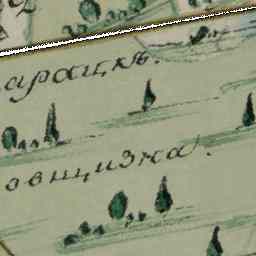 арацкъ.
овщизна.